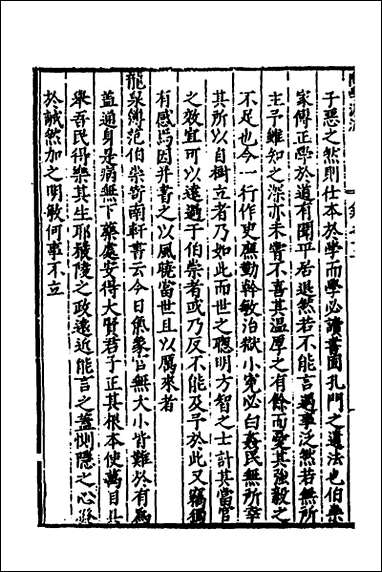 子惡之然則仕本於學而學必讀書固孔門之遺法也伯崇
家傳正學於道有聞平居退然若不能言遇事泛然若無所
主予雖知之深亦未嘗不喜其溫厚之有餘而憂其強毅之
不足也今一行作吏應動幹敏治獄小寃必白姦民無所幸
其所以自樹立者乃如此而世之聰明方智之士計其當官
之效宜可以遠過于伯崇者或乃反不能及予於此又竊獨
有感焉因并書之以風曉當世且以厲來者
龍泉簿范伯崇寄南軒書云今日氣象官無大小皆難於有為
蓋通身是病無下藥處安得大賢君子正其根本使萬目具
舉吾民得樂其生耶嚴陵之政遠近能言之蓋惻隱之心發
於誠然加之明敏何事不立